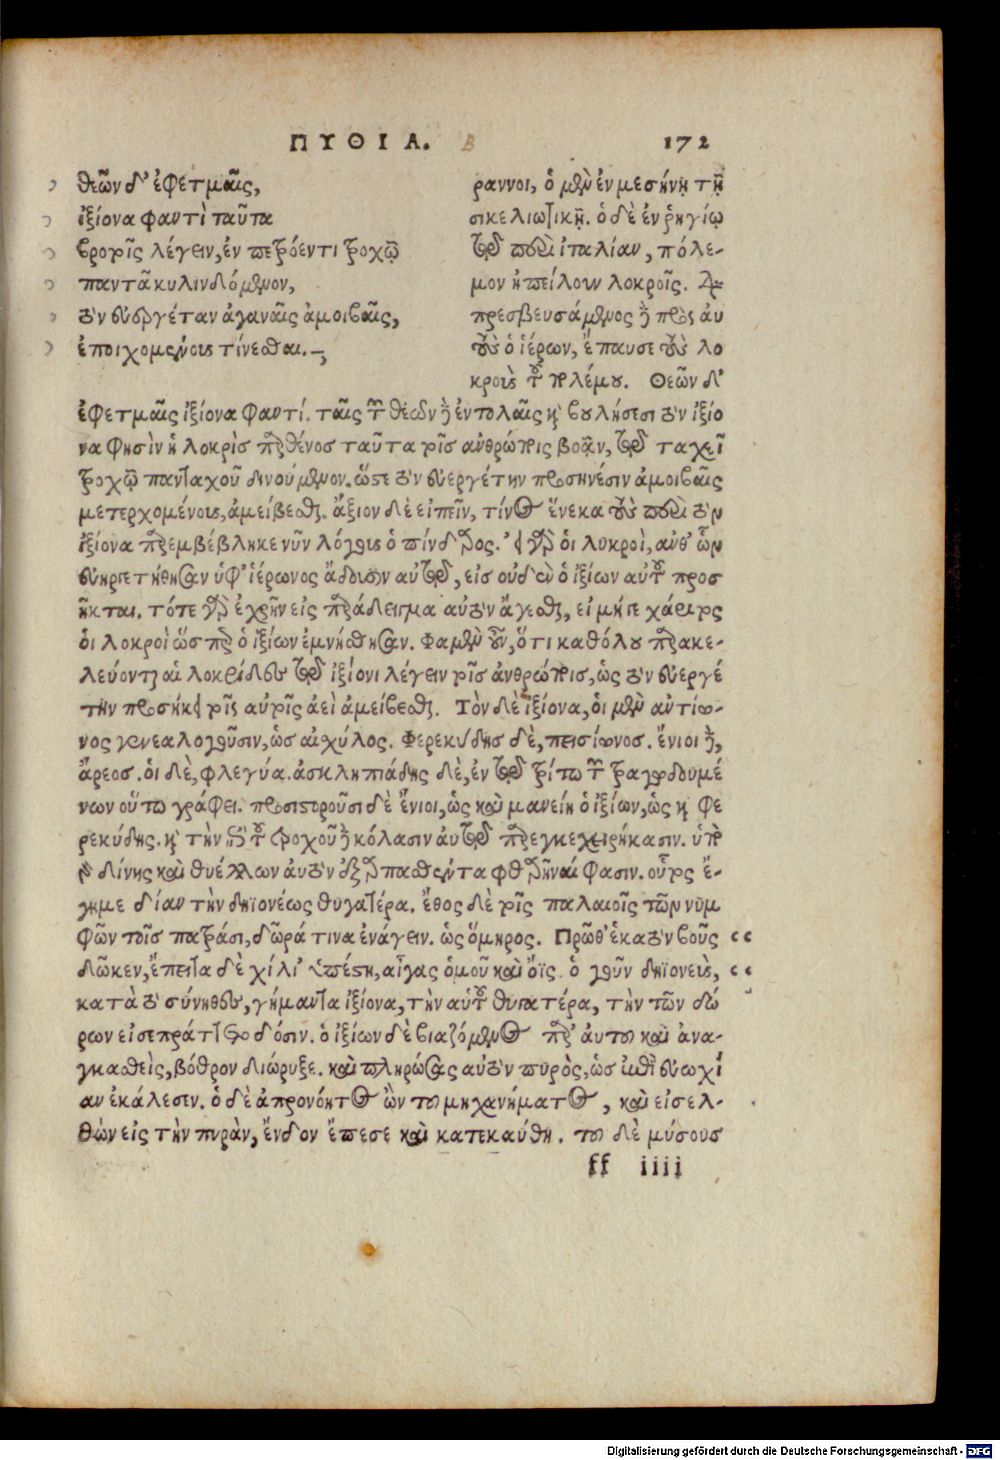 ΠΥΘΙΑ. β 172
θεῶν δ' ἐφετμαῖς,
ἰξίονα φαντὶ ταῦτα
βροτοῖς λέγειν, ἐν πτερόεντι τροχῷ
παντᾶ κυλινδόμενον,
τὸν εὐεργέταν ἀγαναῖς ἀμοιβαῖς,
ἐποιχομένους τίνεσθαι.
ραννοι, ὁ μὲν ἐν μεσήνῃ τῇ
σικελιωτικῇ. ὁ δὲ ἐν ῥηγίῳ
τῷ περὶ ἰταλίαν, πόλε-
μον ἠπείλουν λοκροῖς.
πρεσβευσάμενος δὲ πρὸς αὐ
τοὺς ὁ ἱέρων, ἔπαυσε τοὺς λο
κροὺς τοῦ πολέμου. Θεῶν δ'
ἐφετμαῖς ἰξίονα φαντί. ταῖς τῶν θεῶν δὲ ἐντολαῖς καὶ βουλήσεσι τὸν ἰξίο
να φησὶν ἡ λοκρὶς παρθένος ταῦτα τοῖς ἀνθρώποις βοᾶν, τῷ ταχεῖ
τροχῷ πανταχοῦ δινούμενον. ὥστε τὸν εὐεργέτην προσηνέσιν ἀμοιβαῖς
μετερχομένους, ἀμείβεσθαι. ἄξιον δὲ εἰπεῖν, τίνος ἕνεκα τοὺς περὶ τὸν
ἰξίονα παρεμβέβληκε νῦν λόγους ὁ πίνδαρος. εἰ γὰρ οἱ λοκροὶ, ἀνθ' ὧν
εὐηργετήθησαν ὑφ' ἱέρωνος ᾄδουσιν αὐτῷ, εἰς οὐδὲν ὁ ἰξίων αὐτοῦ προσ
ῆκται. τότε γὰρ ἐχρῆν εἰς παράδειγμα αὐτὸν ἄγεσθαι, εἰ μήτε χάριτος
οἱ λοκροὶ ὥσπερ ὁ ἰξίων ἐμνήσθησαν. Φαμὲν οὖν, ὅτι καθόλου παρακε-
λεύονται αἱ λοκρίδες τῷ ἰξίονι λέγειν τοῖς ἀνθρώποις, ὡς τὸν εὐεργέ
την προσήκει τοῖς αὐτοῖς ἀεὶ ἀμείβεσθαι. Τὸν δὲ ἰξίονα, οἱ μὲν ἀντίω-
νος γενεαλογοῦσιν, ὡς αἰχύλος. Φερεκύδης δὲ, πεισίωνος. ἔνιοι δὲ,
ἄρεος. οἱ δὲ, φλεγύα. ἀσκληπιάδης δὲ, ἐν τῷ τρίτῳ τῶν τραγῳδουμέ
νων οὕτω γράφει. προσιστοροῦσι δὲ ἔνιοι, ὡς καὶ μανείη ὁ ἰξίων, ὡς καὶ φε
ρεκύδης. καὶ τὴν ἐπὶ τοῦ τροχοῦ δὲ κόλασιν αὐτῷ παρεγκεχειρήκασιν. ὑπὸ
δὲ δίνης καὶ θυέλλων αὐτὸν ἐξαρπασθέντα φθαρῆναί φασιν. οὗτος ἔ-
γημε δίαν τὴν δηϊονέως θυγατέρα. ἔθος δὲ τοῖς παλαιοῖς τῶν νυμ
φῶν τοῖς πατράσι, δῶρά τινα ἐνάγειν. ὡς ὅμηρος. Πρῶθ' ἑκατὸν βοῦς
δῶκεν, ἔπειτα δὲ χίλι' ὑπέστη, αἶγας ὁμοῦ καὶ ὄϊς. ὁ γοῦν δηϊονεὺς,
κατὰ τὸ σύνηθες, γήμαντα ἰξίονα, τὴν αὑτοῦ θυγατέρα, τὴν τῶν δώ
ρων εἰσεπράττετο δόσιν. ὁ ἰξίων δὲ βιαζόμενος παρ' αὐτοῦ καὶ ἀνα-
γκασθεὶς, βόθρον διώρυξε. καὶ πληρώσας αὐτὸν πυρὸς, ὡς ἐπὶ εὐωχί
αν ἐκάλεσεν. ὁ δὲ ἀπρονόητος ὢν τοῦ μηχανήματος, καὶ εἰσελ-
θὼν εἰς τὴν πυρὰν, ἔνδον ἔπεσε καὶ κατεκαύθη. τοῦ δὲ μύσους
ff iiii
Digitalisierung gefördert durch die Deutsche Forschungsgemeinschaft - DFG